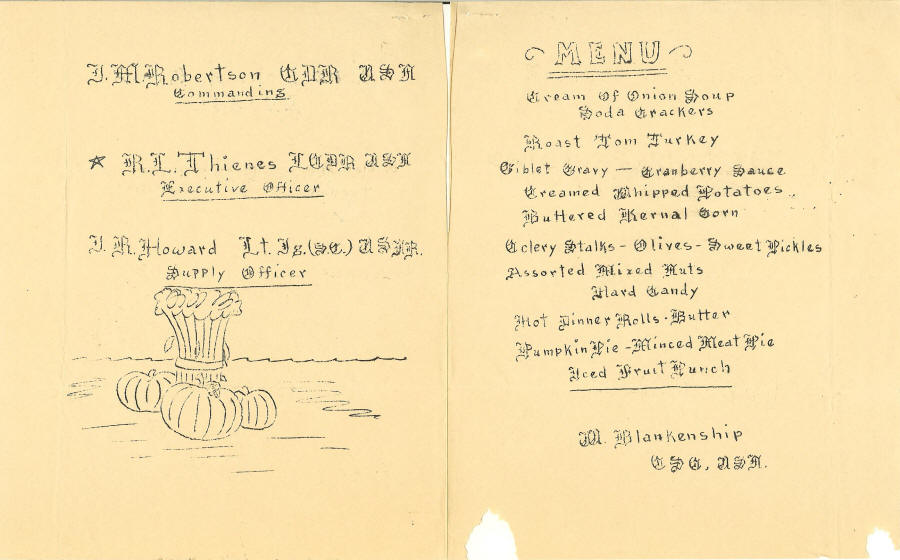 J. M. Robertson CDR USN
Commanding
R. L. Thienes LCDR USN
Executive Officer
J. R. Howard Lt. Jg. (SC) USNR.
Supply Officer
MENU
Cream Of Onion Soup
Soda Crackers
Roast Tom Turkey
Giblet Gravy — Cranberry Sauce
Creamed Whipped Potatoes
Buttered Kernal Corn
Celery Stalks - Olives - Sweet Pickles
Assorted Mixed Nuts
Hard Candy
Hot Dinner Rolls - Butter
Pumpkin Pie - Minced Meat Pie
Iced Fruit Punch
W. Blankenship
CSC, USN.